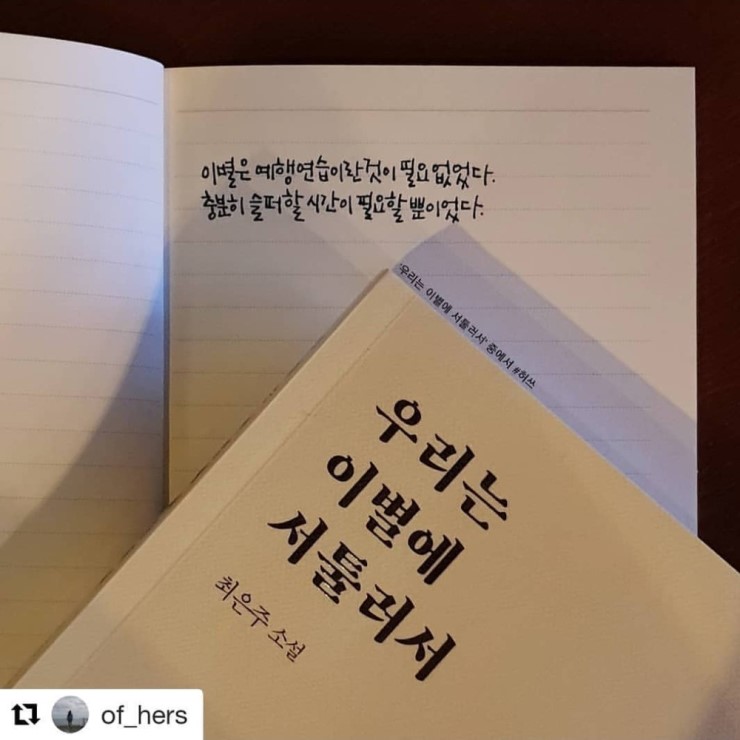 이별은 예행연습이란것이 필요없었다.
충분히 슬퍼할 시간이 필요할 뿐이었다.
'우리는 이별에 서툴러서' 중에서 #허쓰
우리는
이별에
서툴러서
최은주 소설
of_hers